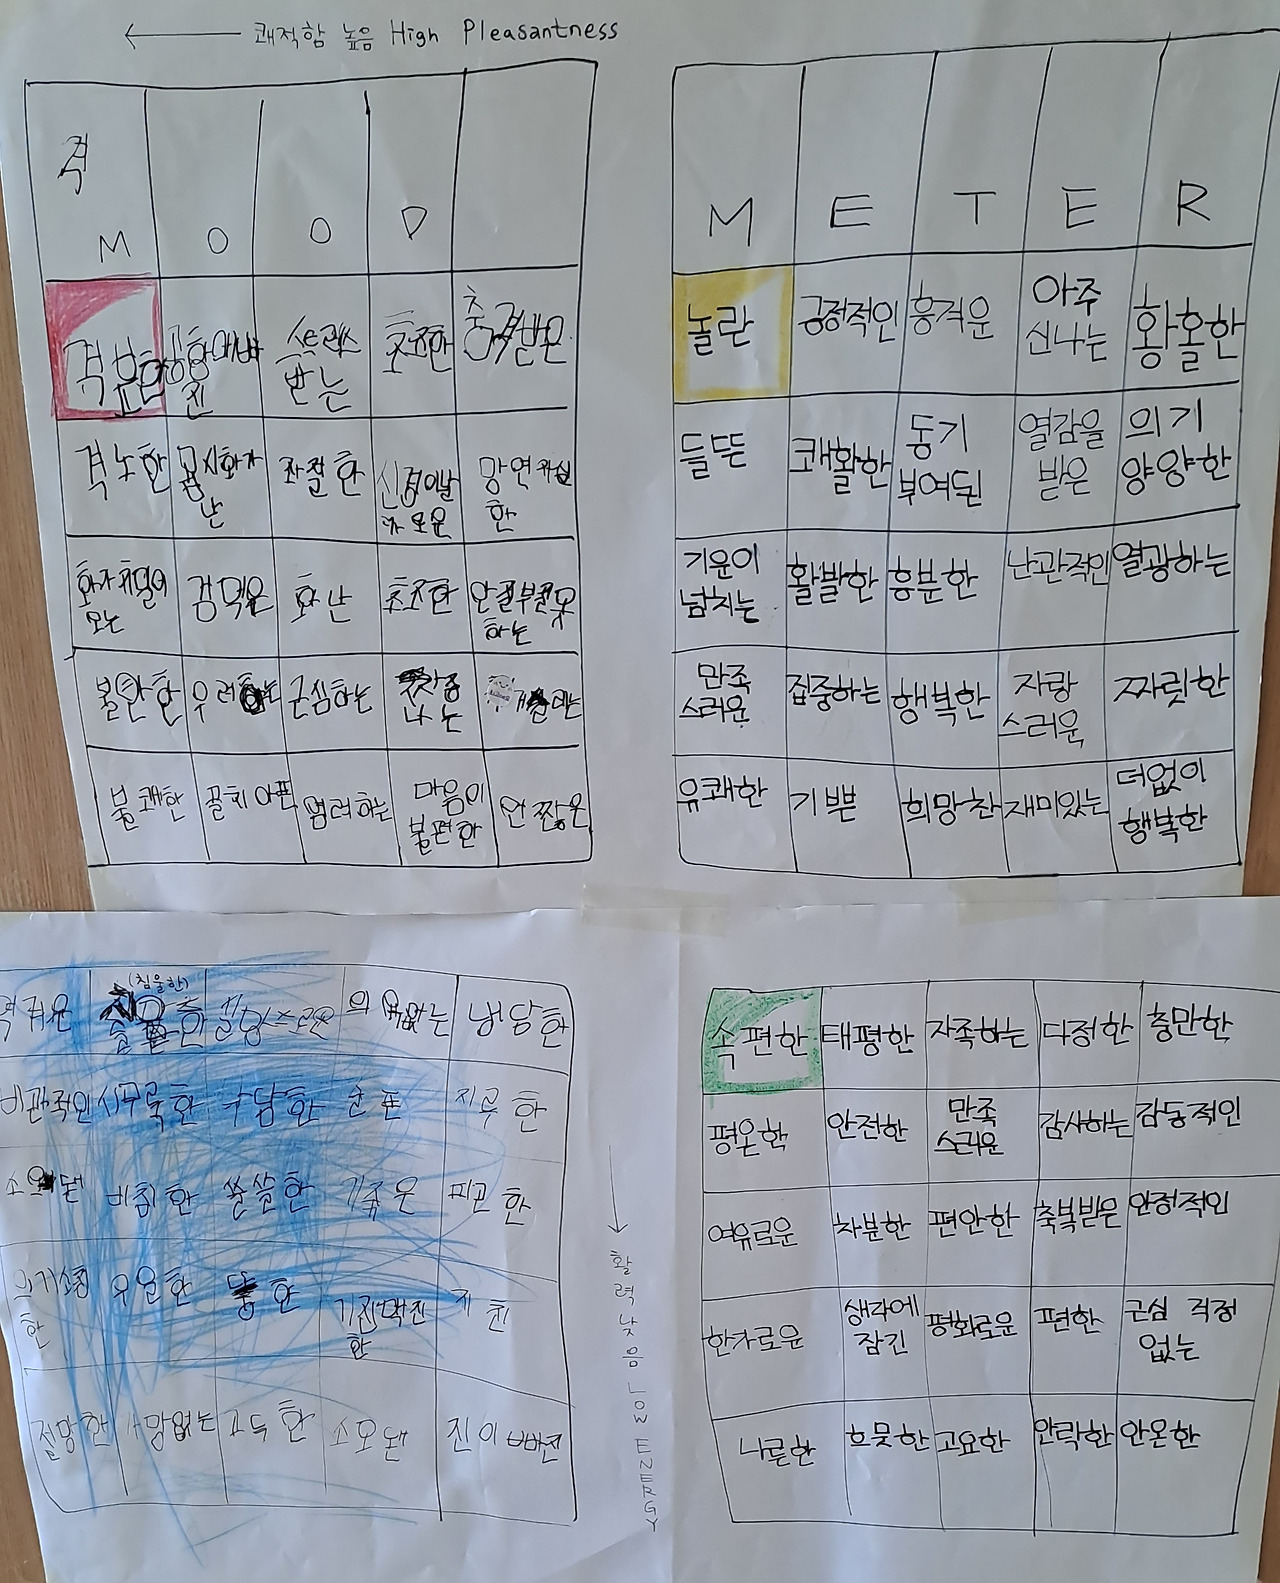 ← 쾌적함 높음 High Pleasantness
격
M O O D
M E T E R
격분한 스트레스 받는 초조한 충격받은
격노한 좌절한 망연자실한
화가치밀어 오는 겁먹은 화난 초조한 안절부절못하는
불안한 근심하는
불쾌한 골치아픈 염려하는 마음이 불편한 언짢은
놀란 긍정적인 흥겨운 아주 신나는 황홀한
들뜬 쾌활한 동기부여된 열감을 받은 의기양양한
기운이 넘치는 활발한 흥분한 난관적인 열광하는
만족스러운 집중하는 행복한 자랑스러운 짜릿한
유쾌한 기쁜 희망찬 재미있는 더없이 행복한
(침울한)
역겨운 의욕없는 냉담한
비관적인 시무룩한 낙담한 지루한
비참한 쓸쓸한 피곤한
의기소침한 우울한 지친
절망한 가망없는 고독한 소모된 진이 빠진
활력 낮음 LOW ENERGY
속편한 태평한 자족하는 다정한 충만한
평온한 안전한 만족스러운 감사하는 감동적인
여유로운 차분한 편안한 축복받은 안정적인
한가로운 생각에 잠긴 평화로운 편한 근심 걱정 없는
나른한 흐뭇한 고요한 안락한 안온한